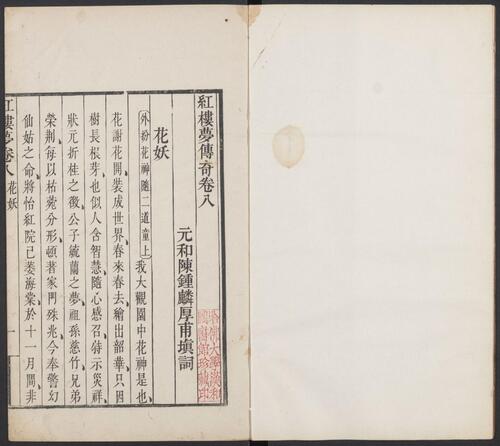 紅樓夢傳奇卷八
元和陳鍾麟厚甫塡詞
花妖
外扮花神隨二道童上我大觀園中花神是也
花謝花開裝成世界春來春去繪出韶華只因
樹長根芽也似人含智慧隨心感召特示災祥
狀元折桂之徵公子毓蘭之夢祖孫慈竹兄弟
榮荆每以枯菀分形頓著家門殊兆今奉警幻
仙姑之命將怡紅院已萎海棠於十一月間非
紅樓夢卷八 花妖 一